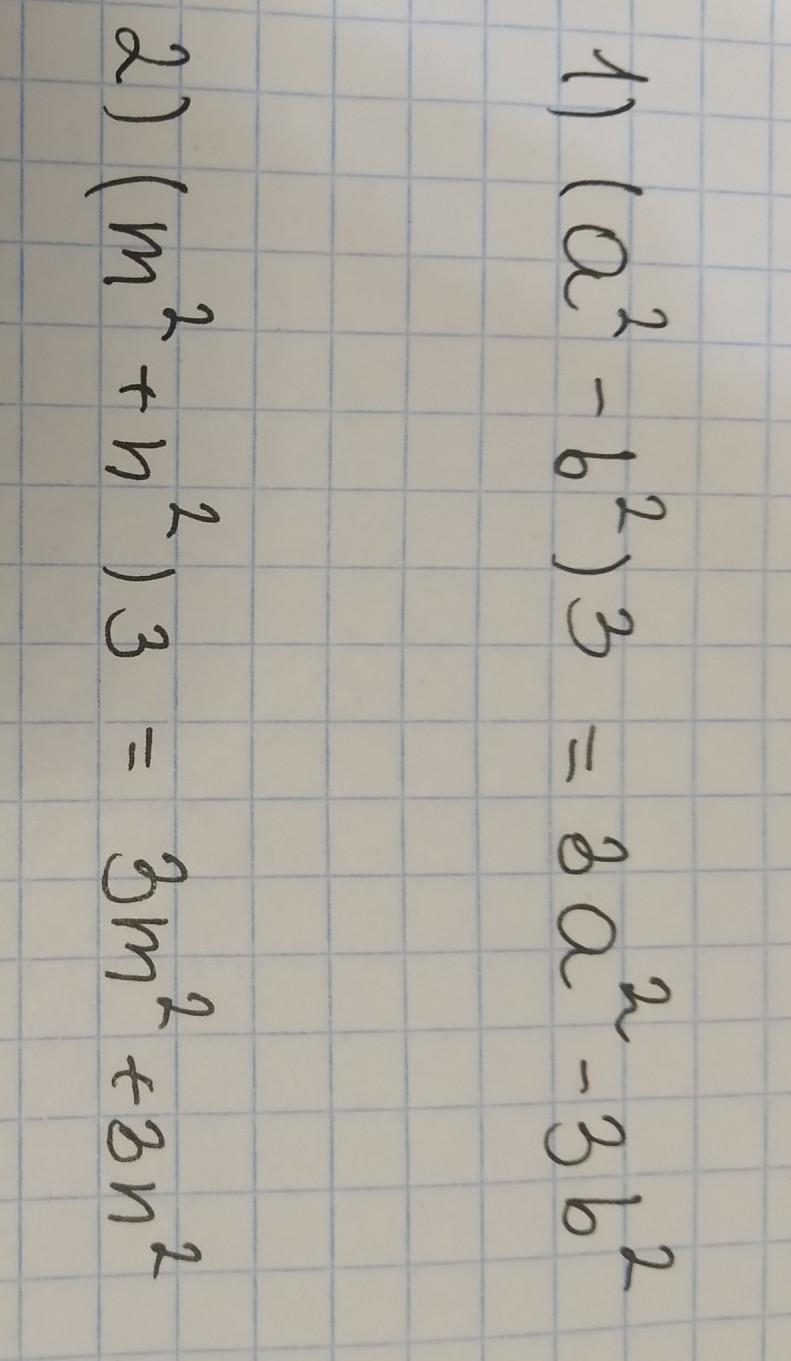 1) (a² - b²)3 = 3a² - 3b²
2) (m² + n²)3 = 3m² + 3n²